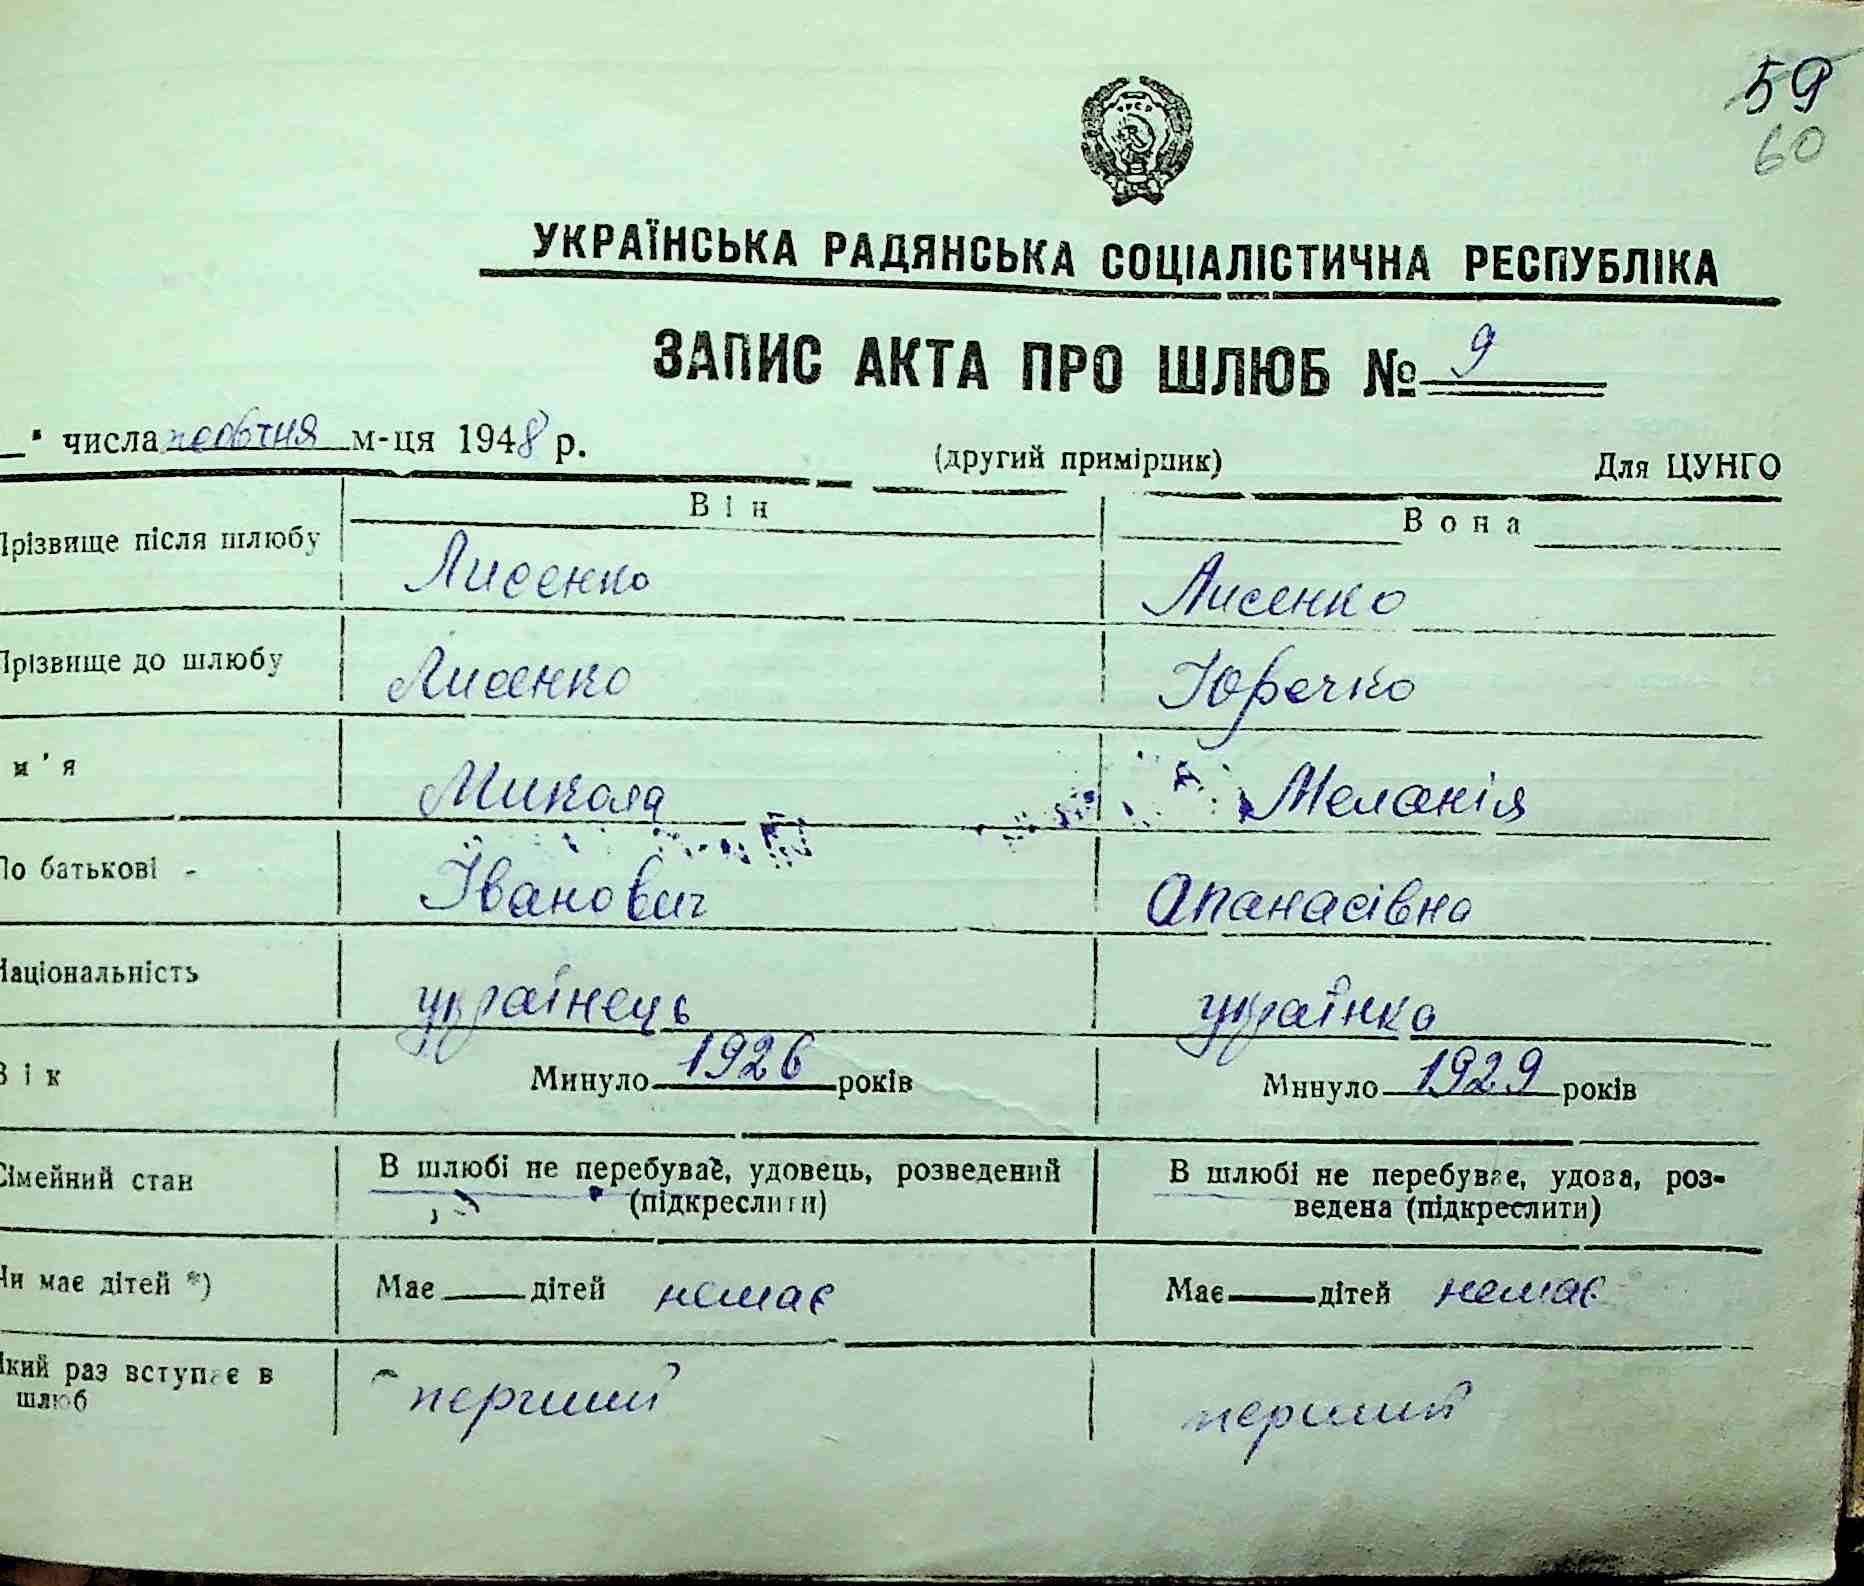 59
60
УКРАЇНСЬКА РАДЯНСЬКА СОЦІАЛІСТИЧНА РЕСПУБЛІКА
ЗАПИС АКТА ПРО ШЛЮБ № 9
" числа жовтня м-ця 1948 р.
(другий примірник) Для ЦУНГО
Він Вона
Прізвище після шлюбу Лисенко Лисенко
Прізвище до шлюбу Лисенко Юречко
м'я Микола Меланія
По батькові - Іванович Апанасівна
Національність українець українка
Вік Минуло 1926 років Минуло 1929 років
Сімейний стан В шлюбі не перебуває, удовець, розведений (підкреслити) В шлюбі не перебуває, удова, роз-
ведена (підкреслити)
Чи має дітей *) Має дітей немає Має дітей немає
Який раз вступає в
шлюб перший перший